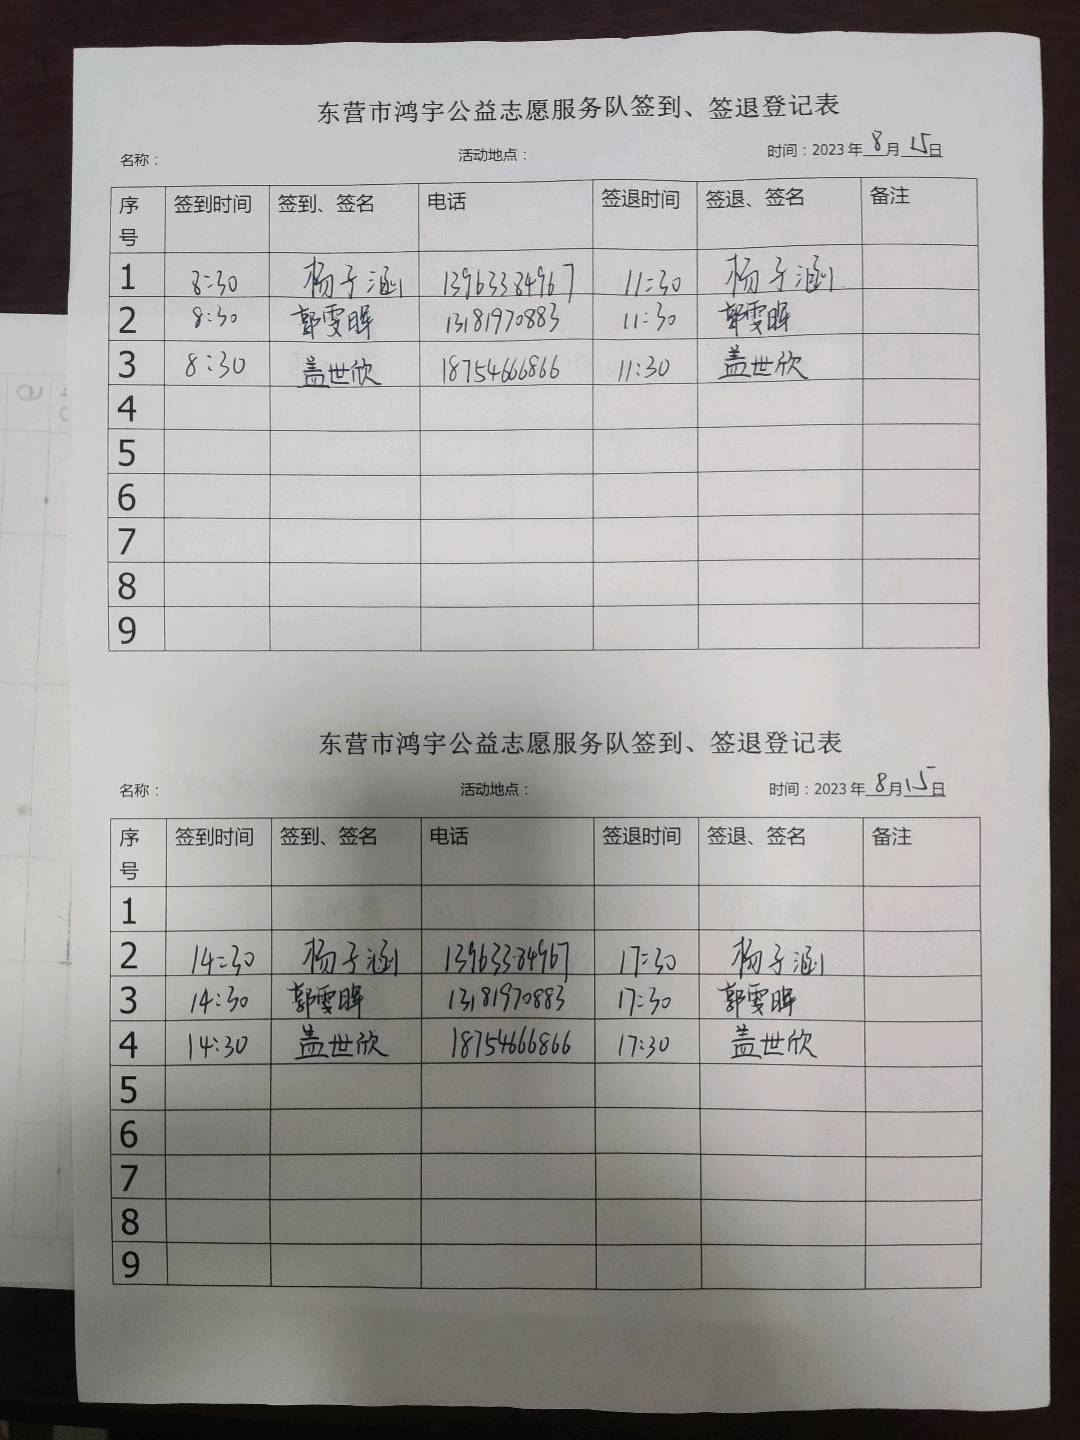 东营市鸿宇公益志愿服务队签到、签退登记表
名称： 活动地点： 时间：2023年 8 月 15 日
序号 签到时间 签到、签名 电话 签退时间 签退、签名 备注
1 8:30 杨子涵 13963384967 11:30 杨子涵
2 8:30 郭雯晖 13181970883 11:30 郭雯晖
3 8:30 盖世欣 18754666866 11:30 盖世欣
4
5
6
7
8
9
东营市鸿宇公益志愿服务队签到、签退登记表
名称： 活动地点： 时间：2023年 8 月 15 日
序号 签到时间 签到、签名 电话 签退时间 签退、签名 备注
1
2 14:30 杨子涵 13963384967 17:30 杨子涵
3 14:30 郭雯晖 13181970883 17:30 郭雯晖
4 14:30 盖世欣 18754666866 17:30 盖世欣
5
6
7
8
9